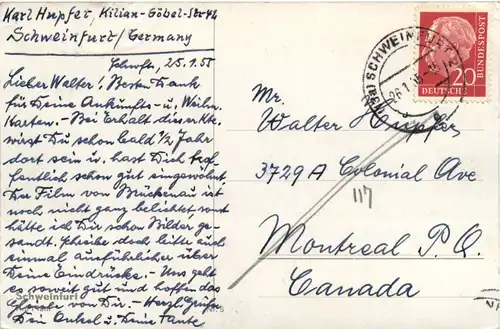 Karl Hupfer, Kilian-Göbel-Str 42
Schweinfurt/Germany
Schwfr., 25.1.58
Lieber Walter! Besten Dank
für Deine Ankunfts- u. Weihn.
Karten.- Bei Erhalt dieser Kte.
wirst Du schon bald 1/2 Jahr
dort sein u. hast Dich hof-
fentlich schon gut eingewöhnt.
Der Film von Brückenau ist
noch nicht ganz belichtet, sonst
hätte ich Dir schon Bilder ge-
sandt. Schreibe doch bitte auch
einmal ausführlicher über
Deine Eindrücke.- Uns geht
es soweit gut und hoffen das
Gleiche von Dir.- Herzl. Grüße
Dein Onkel u. Deine Tante
Schweinfurt
SCHWEINFURT 2
26.1.58
DEUTSCHE
BUNDESPOST
20
Mr.
Walter Hupfer
3729A Colonial Ave
117
Montreal P.Q.
Canada